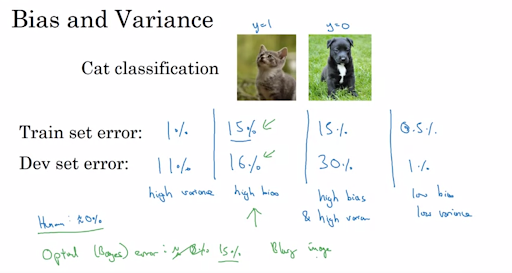 Bias and Variance
y=1 y=0
Cat classification
Train set error: 1% 15% 15% 0.5%
Dev set error: 11% 16% 30% 1%
high variance high bias high bias low bias
& high varian low variance
Human: ≈0%
Optal (Bayes) error: ≈ 15% Blurry images